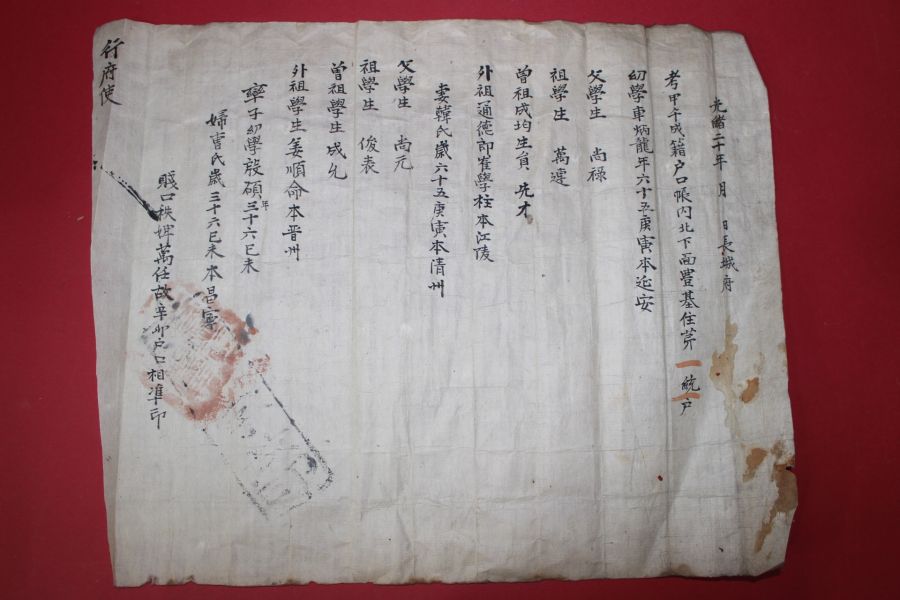 光緒二十年 月 日長城府
考甲午成籍户口帳内北下面豊基住苐一統户
幼學車炳龍年六十五庚寅本延安
父學生 尚禄
祖學生 萬
曾祖成均生負 光才
外祖通德郎崔學柱本江陵
妻韓氏歲六十五庚寅本清州
父學生 尚元
祖學生 俊表
曾祖學生成允
外祖學生姜順命本晋州
率子幼學殷碩年三十六己未
婦曺氏歲三十六己未本昌寧
賤口秩婢萬任故辛卯户口相凖印
行府使